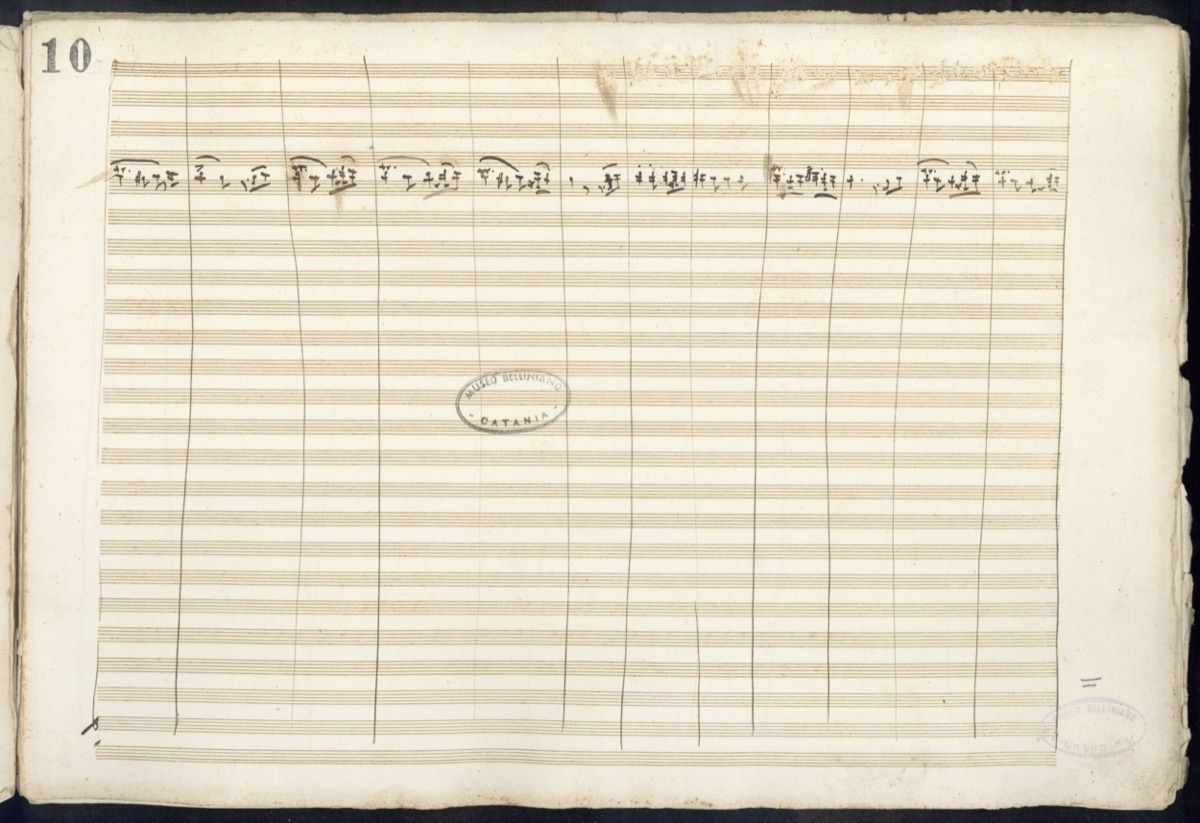 10
MUSEO BELLINIANO
- CATANIA -
MUSEO BELLINIANO